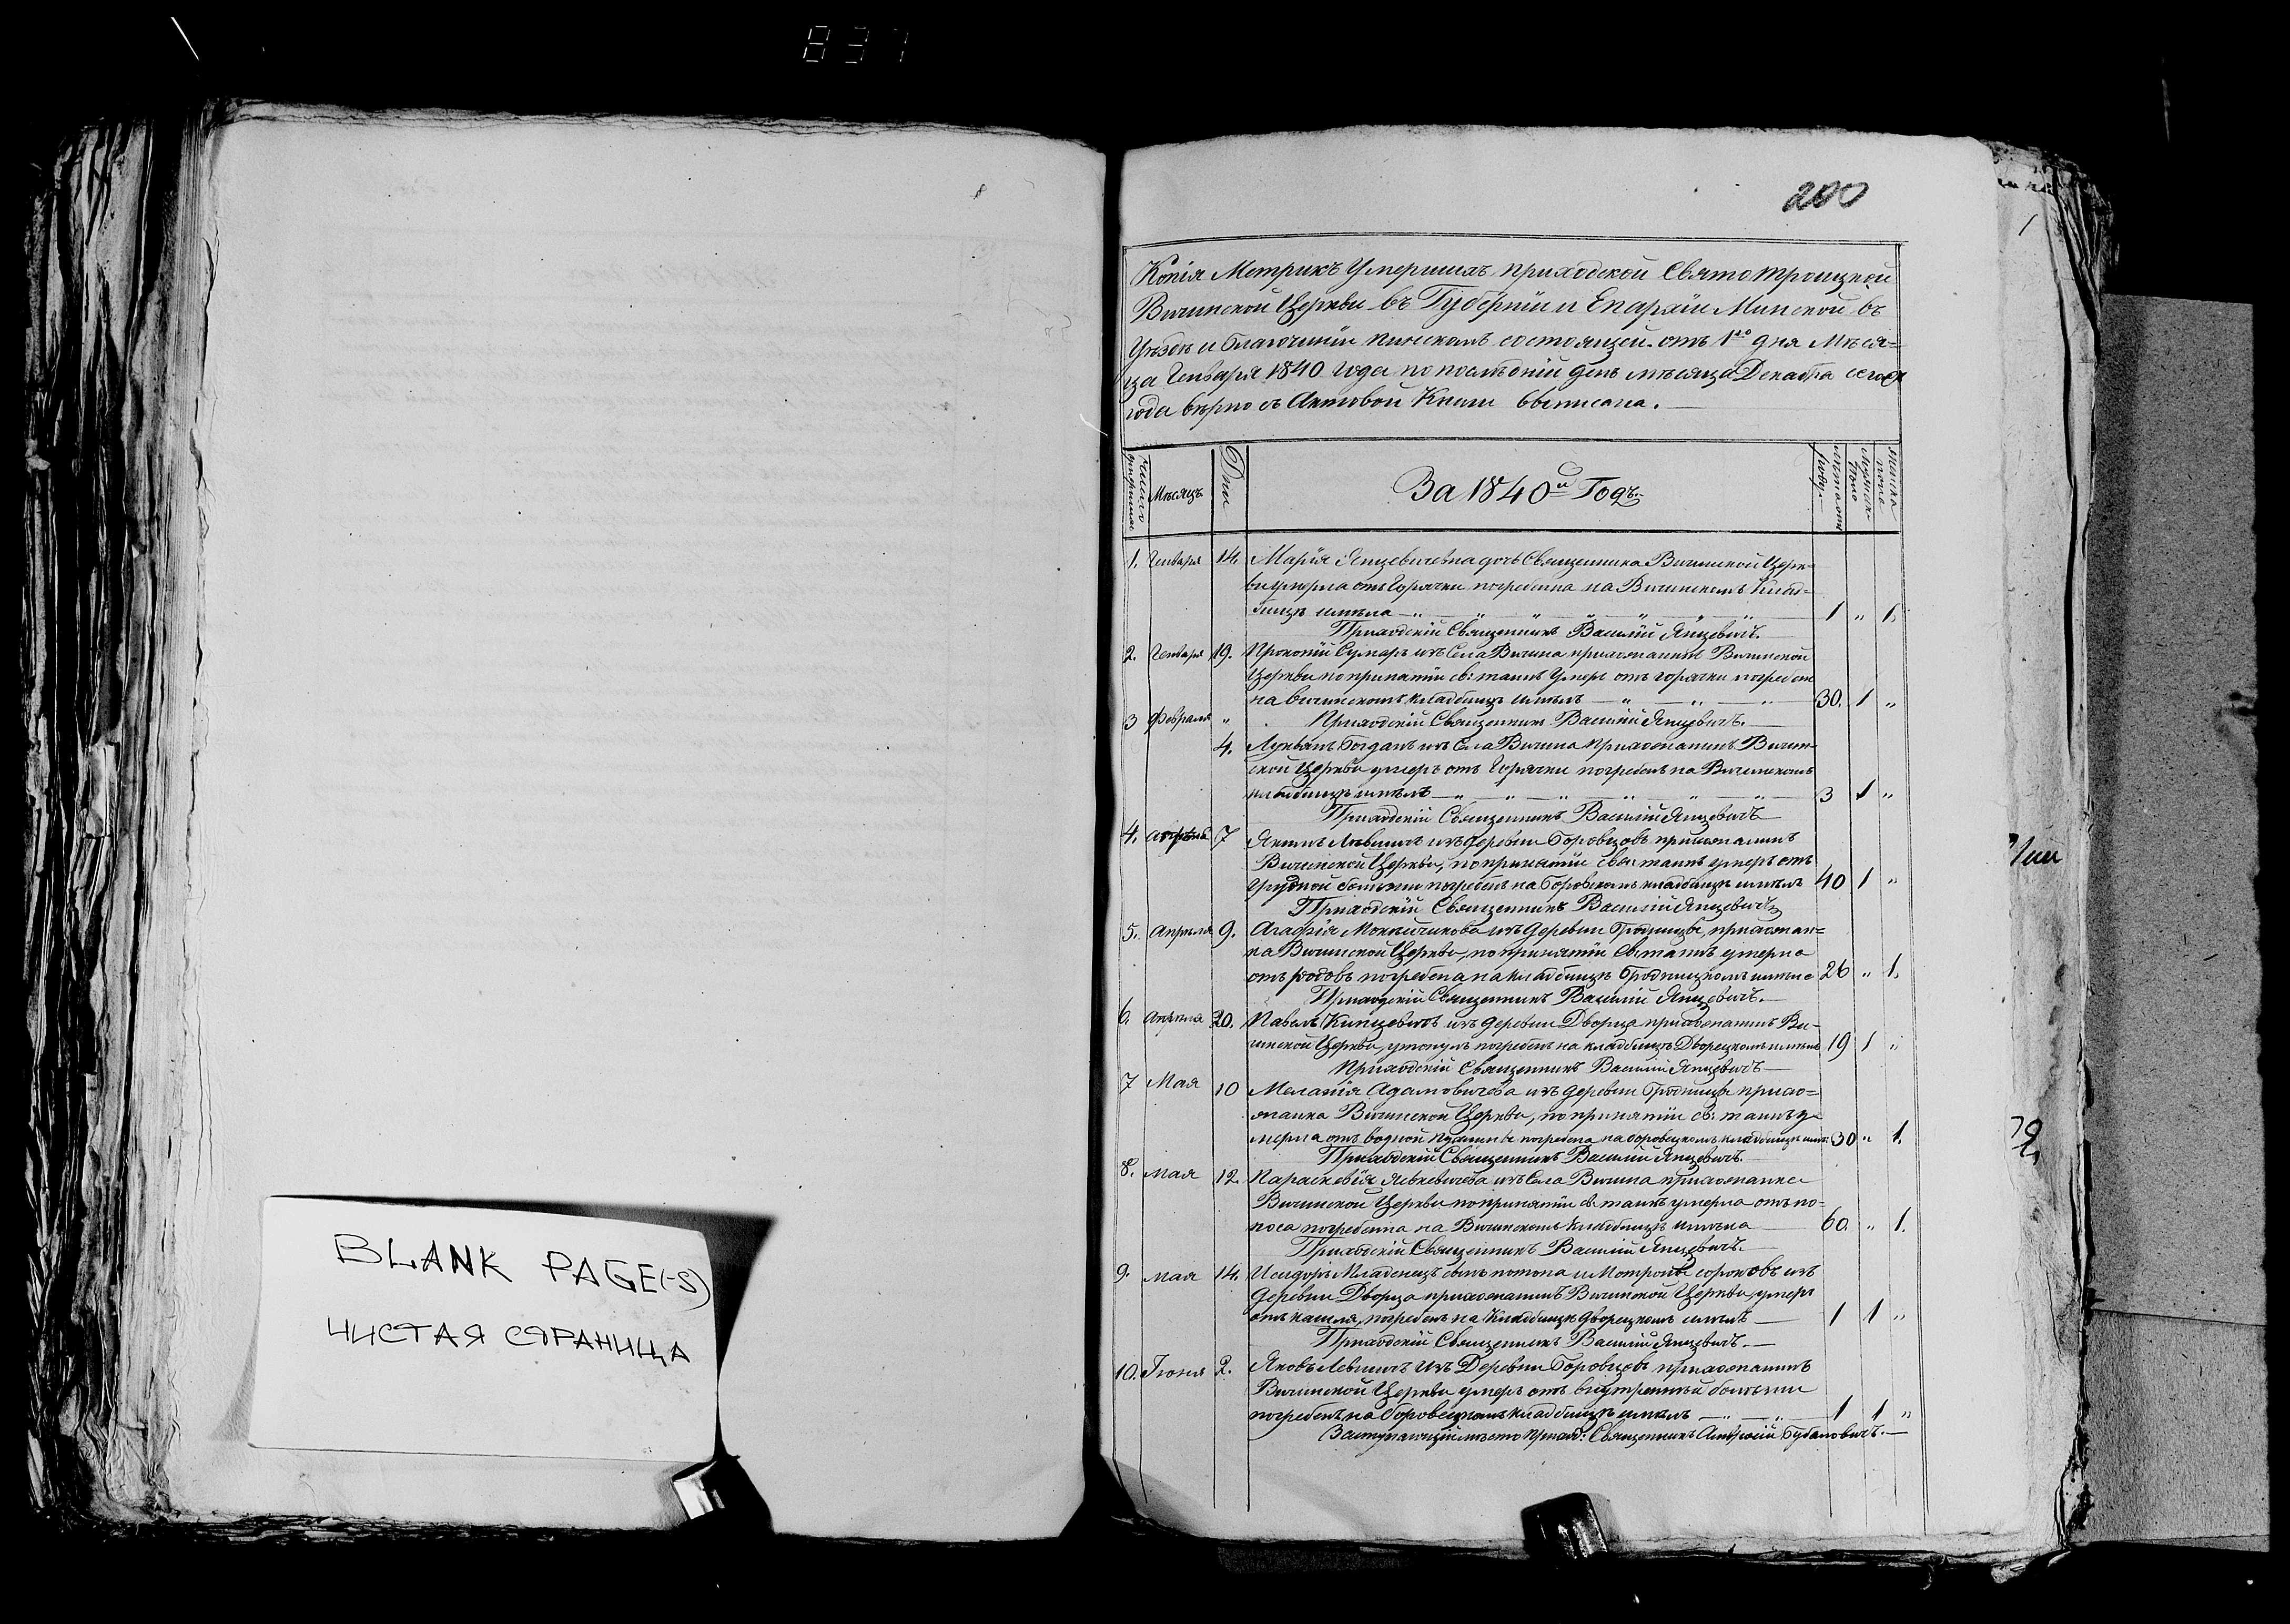 837
200
Копія Метрикъ Умершихъ приходской Святотроицкой
Вичинской Церкви въ Губерніи и Епархіи Минской въ
Уѣздѣ и благочиніи Пинскомъ состоящей отъ 1го дня Мѣся=
ца Генваря 1840 года по послѣдній день мѣсяца Декабря сего
года вѣрно съ Актовой Книги выписана.
Мѣсяцъ Дни За 1840й Годъ.
1. Генваря 14. Марія Янцевичевна дочь Священника Вичинской Церк-
ви умерла отъ Горячки погребена на Вичинскомъ Клад-
бищѣ имѣла 1 „ 1.
Приходскій Священникъ Василій Янцевичъ.
2. Генваря 19. Прокопій Сумаръ изъ Села Вичина прихожанинъ Вичинской
Церкви по принятіи св: таинъ Умеръ отъ горячки погребенъ
на вичинскомъ кладбищѣ имѣлъ 30. 1 „
3 Февраля „ Приходскій Священникъ Василій Янцевичъ.
4. Лукьянъ Богданъ изъ Села Вичина Прихожанинъ Вичин-
ской Церкви умеръ отъ Горячки погребенъ на Вичинскомъ
кладбищѣ имѣлъ 3 1 „
Приходскій Священникъ Василій Янцевичъ
4. 7 Якимъ Левшичъ изъ деревни Боровцовъ прихожанинъ
Вичинской Церкви, по принятіи свя: таинъ умеръ отъ
Грудной болѣзни погребенъ на Боровскомъ кладбищѣ имѣлъ 40 1 „
Приходскій Священникъ Василій Янцевичъ
5. Апрѣля 9. Агафія изъ деревни Бродницы, прихожан=
ка Вичинской Церкви, по принятіи св: таинъ умерла
отъ родовъ погребена на кладбищѣ Бродницкомъ имѣла 26 „ 1.
Приходскій Священникъ Василій Янцевичъ.
6. Апрѣля 20. Павелъ Кинцевичъ изъ деревни Дворца прихожанинъ Ви-
чинской Церкви, утонулъ погребенъ на кладбищѣ Дворецкомъ имѣлъ 19 1 „
Приходскій Священникъ Василій Янцевичъ
7 Мая 10 Меланія Адамовичева изъ деревни Бродницы прихо=
жанка Вичинской Церкви, по принятіи св: таинъ у-
мерла отъ водной погребена на боровецкомъ кладбищѣ имѣ: 30 „ 1.
Приходскій Священникъ Василій Янцевичъ.
8. Мая 12. Параскевія Левкевичева изъ Села Вичина прихожанка
Вичинской Церкви по принятіи св. таинъ умерла отъ по-
носа погребена на Вичинскомъ Кладбищѣ имѣла 60. „ 1.
Приходскій Священникъ Василій Янцевичъ.
9. Мая 14. Исидоръ Младенецъ сынъ и Мотроны изъ
деревни Дворца прихожанинъ Вичинской Церкви, умеръ
отъ кашля, погребенъ на Кладбищѣ дворецкомъ имѣлъ 1 1 „
Приходскій Священникъ Василій Янцевичъ.
10. Іюня 2. Яковъ Левшичъ изъ Деревни Боровцовъ прихожанинъ
Вичинской Церкви умеръ отъ внутренней болѣзни
погребенъ на боровецкомъ кладбищѣ имѣлъ 1 1 „
Заступающій мѣсто Приход: Священникъ
BLANK PAGE(-S)
ЧИСТАЯ СТРАНИЦА